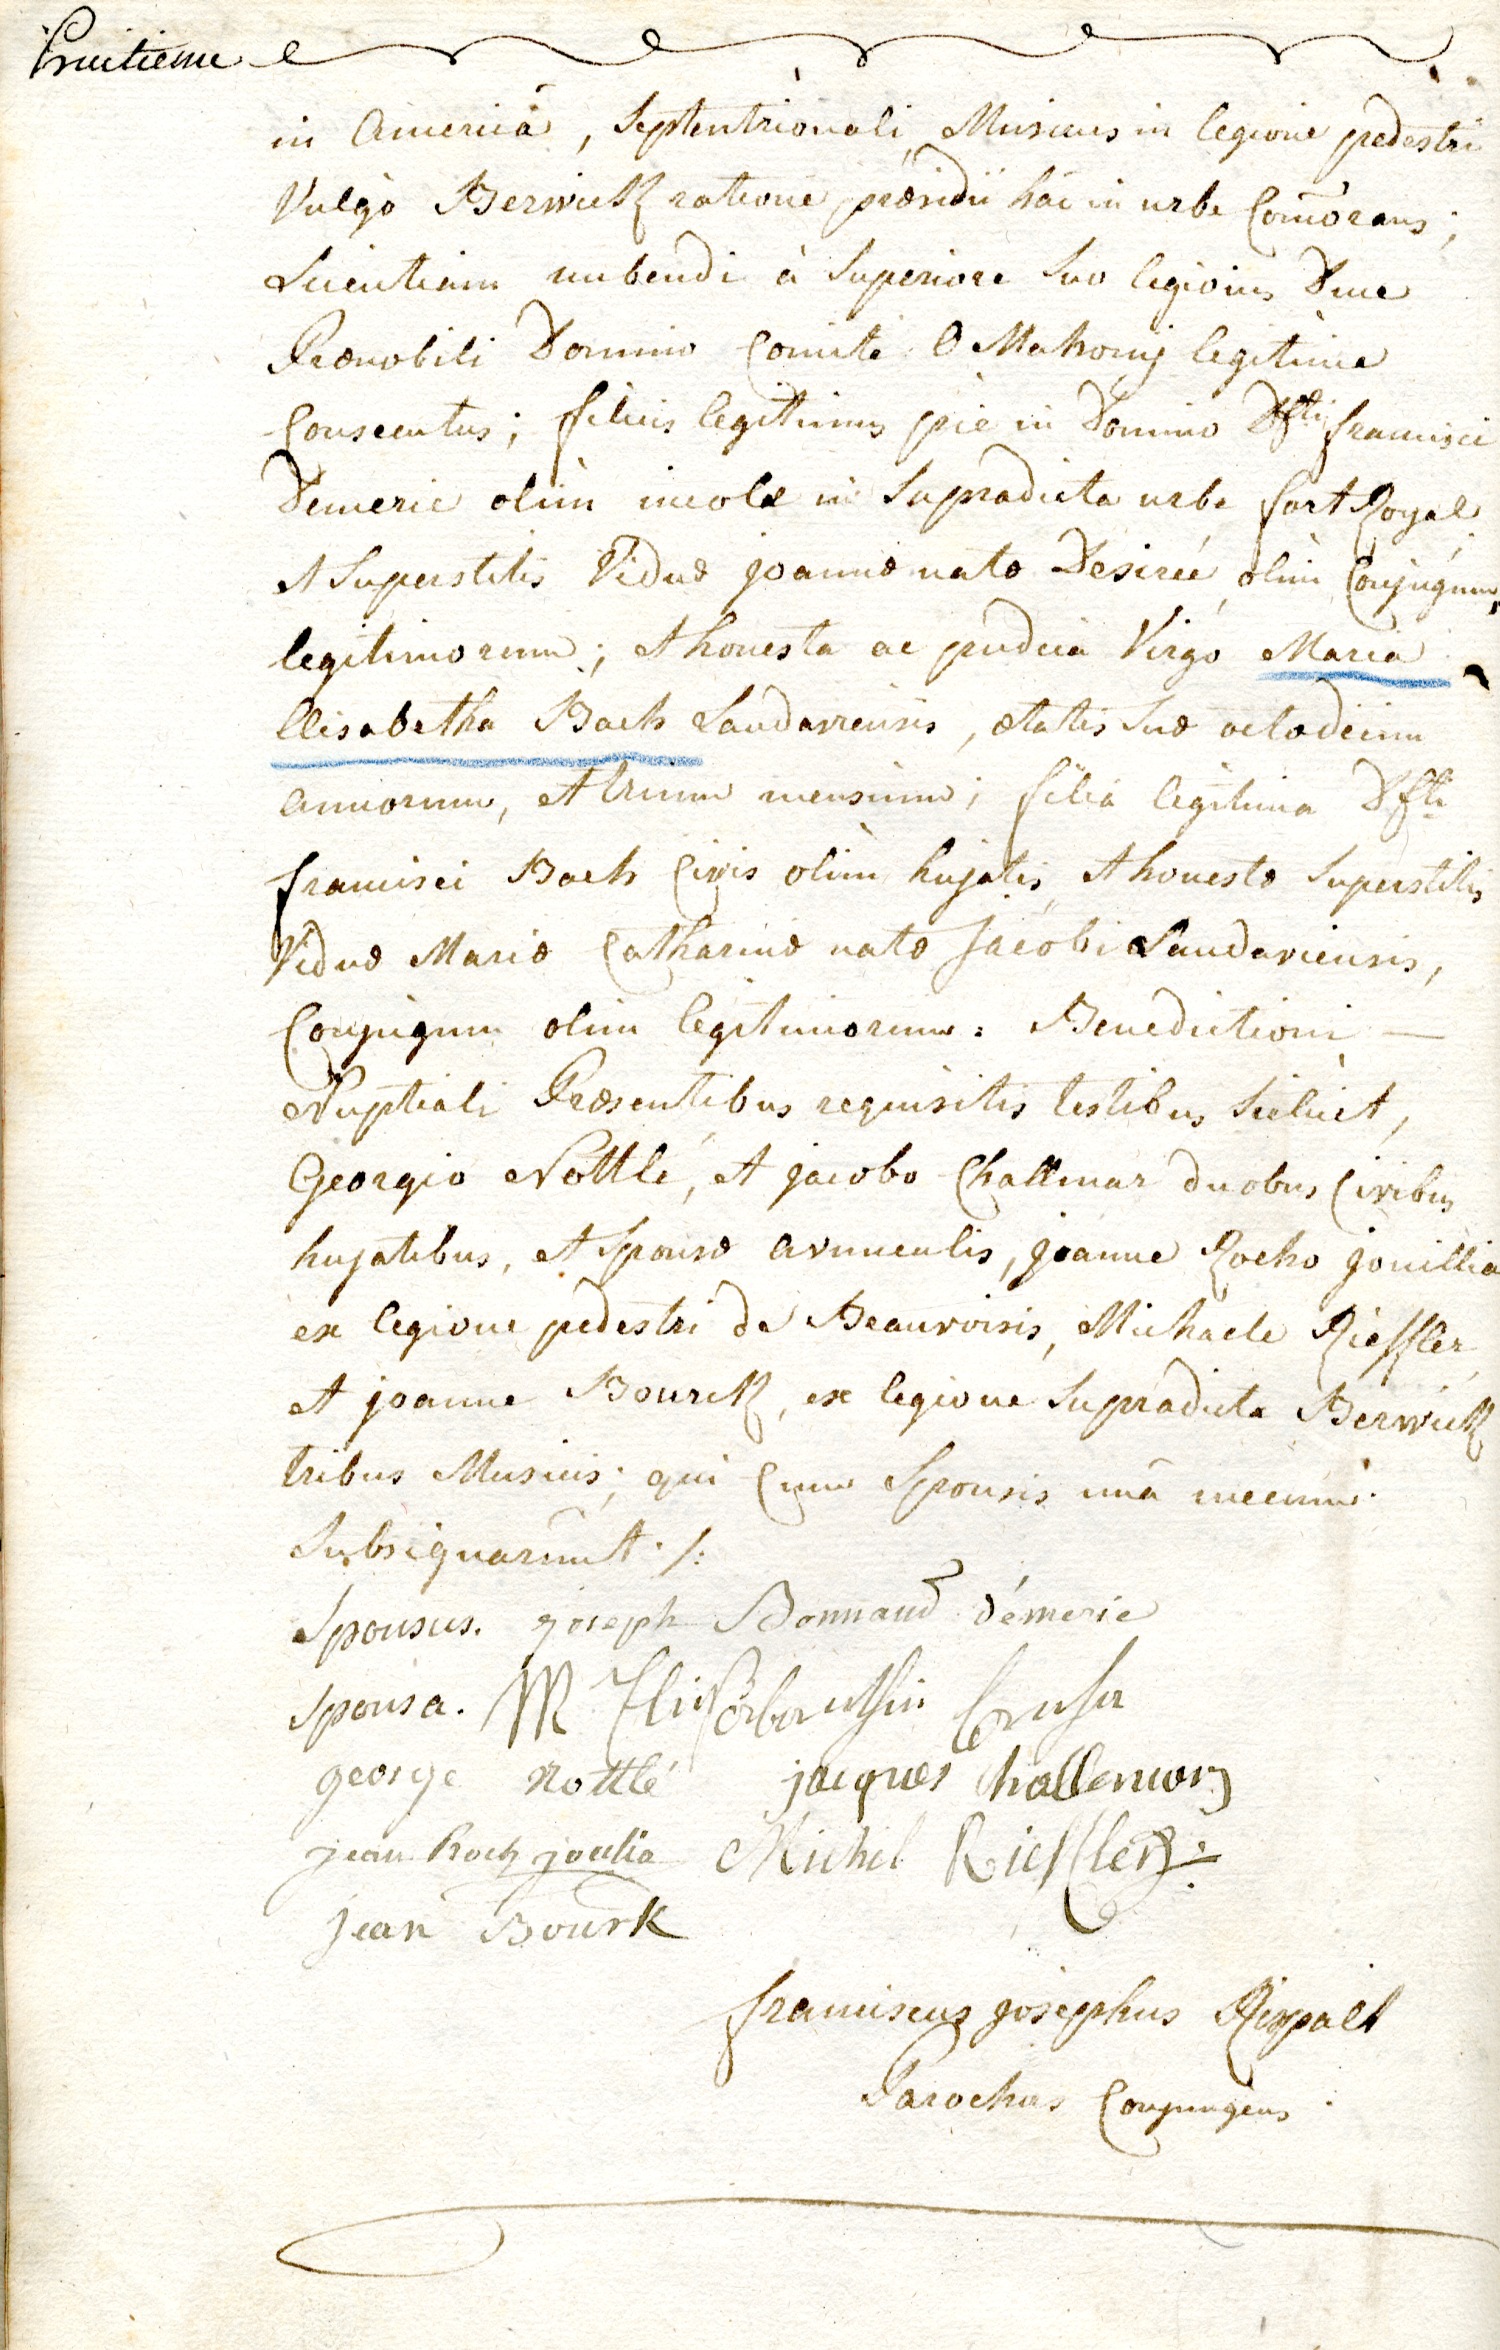 huitieme
in Americâ, Septentrionali, Musicus in legione pedestri
Vulgò Berwick ratione præsidii hâc in urbe Com̄orans;
Licentiam nubendi à Superiore Suo legionis Duce
Prænobili Domino Comite O Mahony legitime
Consecutus; filius legitimus piè in Domino Dfti francisci
Demerie olim incolæ in Supradicta urbe fort Royal
et Superstitis Viduæ joannæ natæ Desireé, olim Conjugum
legitimorum; et honesta ac pudica Virgo Maria
Elisabetha Bach Landaviensis, ætatis Suæ octodecim
annorum, et trium mensium; filia legitima Dfti
francisci Bach Civis olim hujatis, et honestæ Superstitis
Viduæ Mariæ Catharinæ natæ Jacobi Landaviensis,
Conjugum olim legitimorum: Benedictioni —
Nuptiali Præsentibus requisitis testibus Scilicet,
Georgio Nottlé, et jacobo Challmar duobus Civibus
hujatibus, et Sponsæ avunculis, joanne Rocho jouillia
ex legione pedestri de Beauvoisis, Michaele Rieffler
et joanne Bourck, ex legione Supradicta Berwick
tribus Musicis; qui Cum Sponsis unâ mecum
Subsignarunt ./:
Sponsus. joseph Bonnaud démerie
Sponsa. M
george nottlé jacques
jean Roch joulia Michel Rieffler
jean Bourk
franciscus josephus Rippalt
Parochus Conjungens.